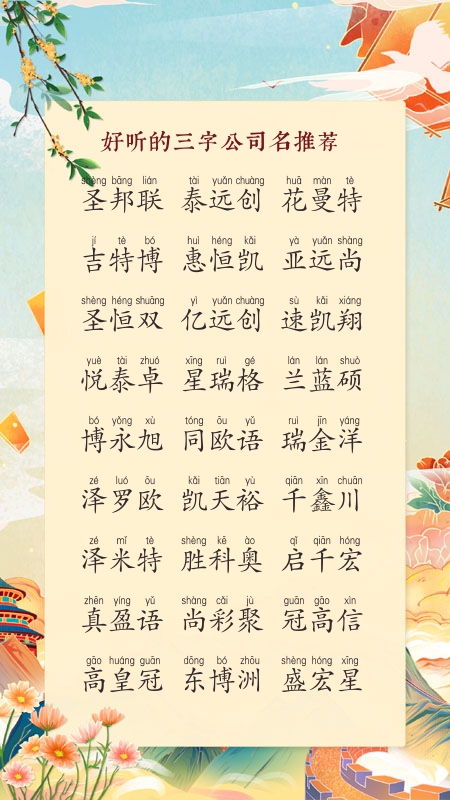 好听的三字公司名推荐
shèng bāng lián tài yuǎn chuàng huā màn tè
圣邦联 泰远创 花曼特
jí tè bó huì héng kǎi yà yuǎn shàng
吉特博 惠恒凯 亚远尚
shèng héng shuāng yì yuǎn chuàng sù kǎi xiáng
圣恒双 亿远创 速凯翔
yuè tài zhuó xīng ruì gé lán lán shuò
悦泰卓 星瑞格 兰蓝硕
bó yǒng xù tóng ōu yǔ ruì jīn yáng
博永旭 同欧语 瑞金洋
zé luó ōu kǎi tiān yù qiān xīn chuān
泽罗欧 凯天裕 千鑫川
zé mǐ tè shèng kē ào qǐ qiān hóng
泽米特 胜科奥 启千宏
zhēn yíng yǔ shàng cǎi jù guān gāo xìn
真盈语 尚彩聚 冠高信
gāo huáng guān dōng bó zhōu shèng hóng xīng
高皇冠 东博洲 盛宏星